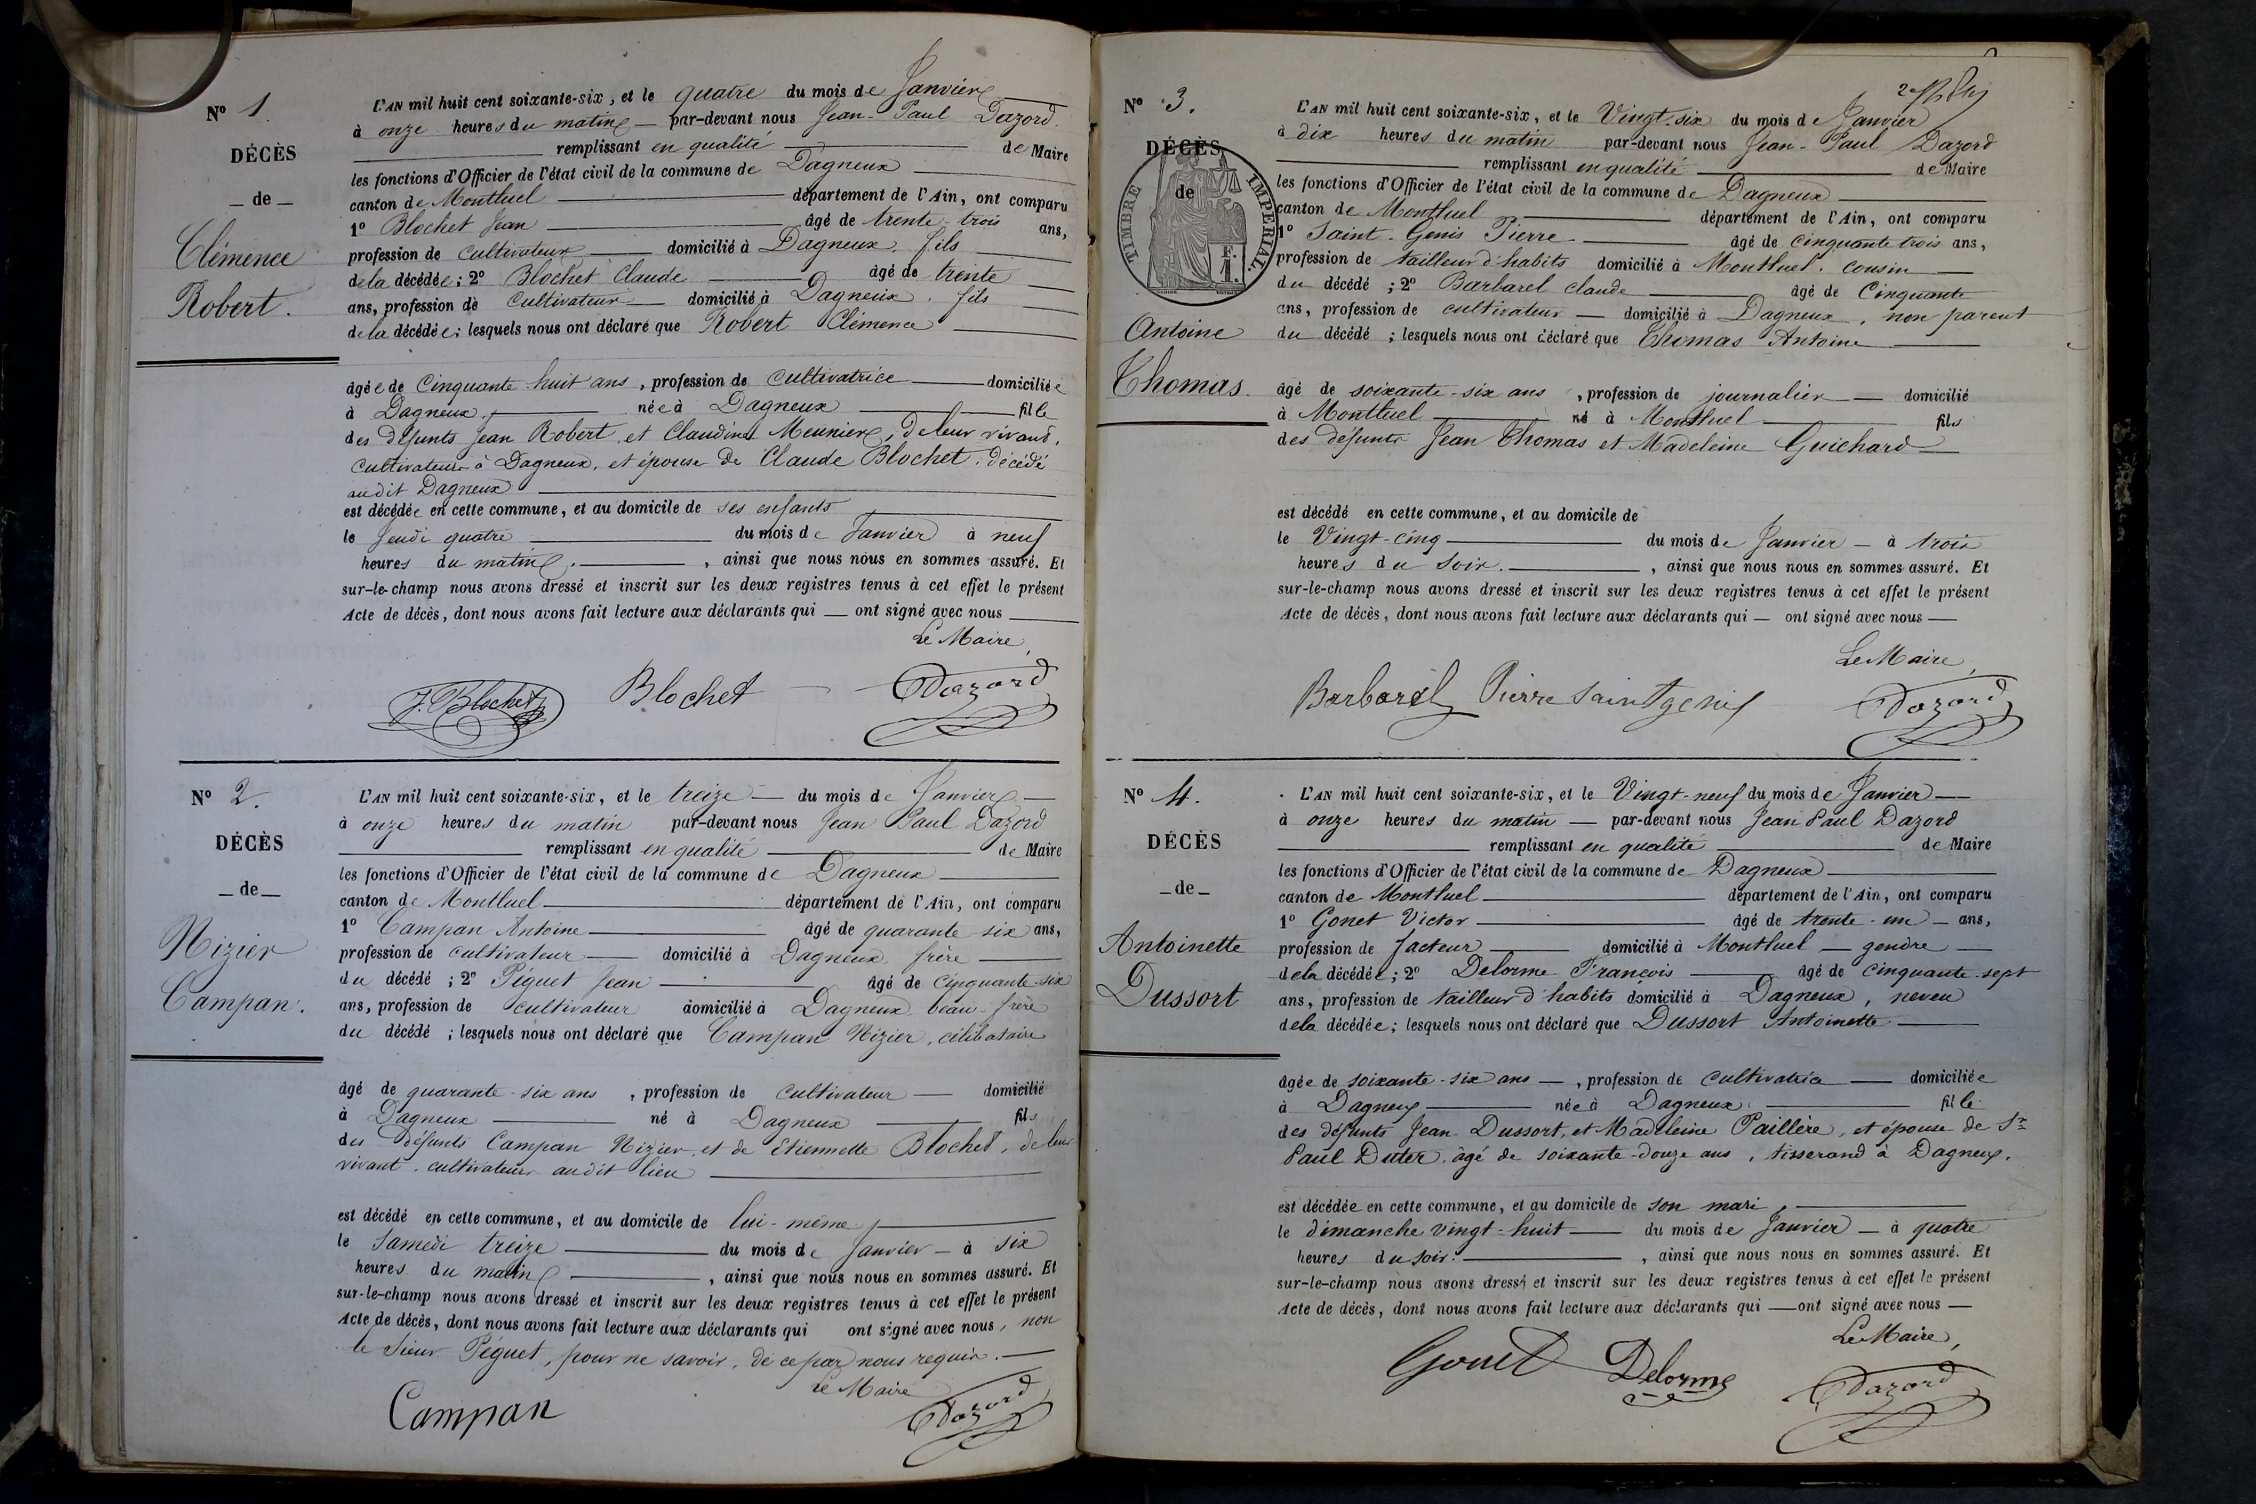 N° 1.
DÉCÈS
de
Clémence
Robert.
L'AN mil huit cent soixante-six, et le quatre du mois de Janvier
à onze heures du matin par-devant nous Jean-Paul Dazord
remplissant en qualité de Maire
les fonctions d'Officier de l'état civil de la commune de Dagneux
canton de Montluel département de l'Ain, ont comparu
1° Blochet Jean âgé de trente-trois ans,
profession de cultivateur domicilié à Dagneux, fils
de la décédée; 2° Blochet Claude âgé de trente
ans, profession de cultivateur domicilié à Dagneux, fils
de la décédée; lesquels nous ont déclaré que Robert Clémence
âgée de Cinquante huit ans, profession de cultivatrice domiciliée
à Dagneux, née à Dagneux fille
des défunts Jean Robert et Claudine Meunier, de leur vivant,
cultivateurs à Dagneux, et épouse de Claude Blochet, décédé
audit Dagneux
est décédée en cette commune, et au domicile de ses enfants
le Jeudi quatre du mois de Janvier à neuf
heures du matin, ainsi que nous nous en sommes assuré. Et
sur-le-champ nous avons dressé et inscrit sur les deux registres tenus à cet effet le présent
Acte de décès, dont nous avons fait lecture aux déclarants qui — ont signé avec nous
Le Maire,
J. Blochet Blochet Dazord
N° 2.
DÉCÈS
de
Nizier
Campan.
L'AN mil huit cent soixante-six, et le treize du mois de Janvier
à onze heures du matin par-devant nous Jean Paul Dazord
remplissant en qualité de Maire
les fonctions d'Officier de l'état civil de la commune de Dagneux
canton de Montluel département de l'Ain, ont comparu
1° Campan Antoine âgé de quarante six ans,
profession de cultivateur domicilié à Dagneux frère
du décédé; 2° Péguet Jean âgé de cinquante-six
ans, profession de cultivateur domicilié à Dagneux beau-frère
du décédé; lesquels nous ont déclaré que Campan Nizier, célibataire
âgé de quarante-six ans, profession de cultivateur domicilié
à Dagneux né à Dagneux fils
des défunts Campan Nizier, et de Etiennette Blochet, de leur
vivant, cultivateurs audit lieu
est décédé en cette commune, et au domicile de lui-même,
le Samedi treize du mois de Janvier à six
heures du matin, ainsi que nous nous en sommes assuré. Et
sur-le-champ nous avons dressé et inscrit sur les deux registres tenus à cet effet le présent
Acte de décès, dont nous avons fait lecture aux déclarants qui ont signé avec nous, non
le sieur Péguet, pour ne savoir, de ce par nous requis.
Le Maire
Campan Dazord
N° 3.
DÉCÈS
de
TIMBRE IMPERIAL.
Antoine
Thomas.
L'AN mil huit cent soixante-six, et le Vingt-six du mois de Janvier
à dix heures du matin par-devant nous Jean-Paul Dazord
remplissant en qualité de Maire
les fonctions d'Officier de l'état civil de la commune de Dagneux
canton de Montluel département de l'Ain, ont comparu
1° Saint-Genis Pierre âgé de cinquante trois ans,
profession de tailleur d'habits domicilié à Montluel. cousin
du décédé; 2° Barbarel Claude âgé de Cinquante
ans, profession de cultivateur domicilié à Dagneux, non parent
du décédé; lesquels nous ont déclaré que Thomas Antoine
âgé de soixante-six ans, profession de journalier domicilié
à Montluel né à Montluel fils
des défunts Jean Thomas et Madeleine Guichard
est décédé en cette commune, et au domicile de
le Vingt-cinq du mois de Janvier à trois
heures du soir, ainsi que nous nous en sommes assuré. Et
sur-le-champ nous avons dressé et inscrit sur les deux registres tenus à cet effet le présent
Acte de décès, dont nous avons fait lecture aux déclarants qui — ont signé avec nous
Le Maire,
Barbarel Pierre Saintgenis Dazord
N° 4.
DÉCÈS
de
Antoinette
Dussort
L'AN mil huit cent soixante-six, et le Vingt-neuf du mois de Janvier
à onze heures du matin par-devant nous Jean Paul Dazord
remplissant en qualité de Maire
les fonctions d'Officier de l'état civil de la commune de Dagneux
canton de Montluel département de l'Ain, ont comparu
1° Gonet Victor âgé de trente-un ans,
profession de facteur domicilié à Montluel gendre
de la décédée; 2° Delorme François âgé de cinquante-sept
ans, profession de tailleur d'habits domicilié à Dagneux, neveu
de la décédée; lesquels nous ont déclaré que Dussort Antoinette
âgée de soixante-six ans, profession de cultivatrice domiciliée
à Dagneux née à Dagneux fille
des défunts Jean Dussort, et Madeleine Paillère, et épouse de Sr
Paul Duter, âgé de soixante-douze ans, tisserand à Dagneux.
est décédée en cette commune, et au domicile de son mari,
le dimanche vingt-huit du mois de Janvier à quatre
heures du soir, ainsi que nous nous en sommes assuré. Et
sur-le-champ nous avons dressé et inscrit sur les deux registres tenus à cet effet le présent
Acte de décès, dont nous avons fait lecture aux déclarants qui — ont signé avec nous
Le Maire,
Gonet Delorme Dazord